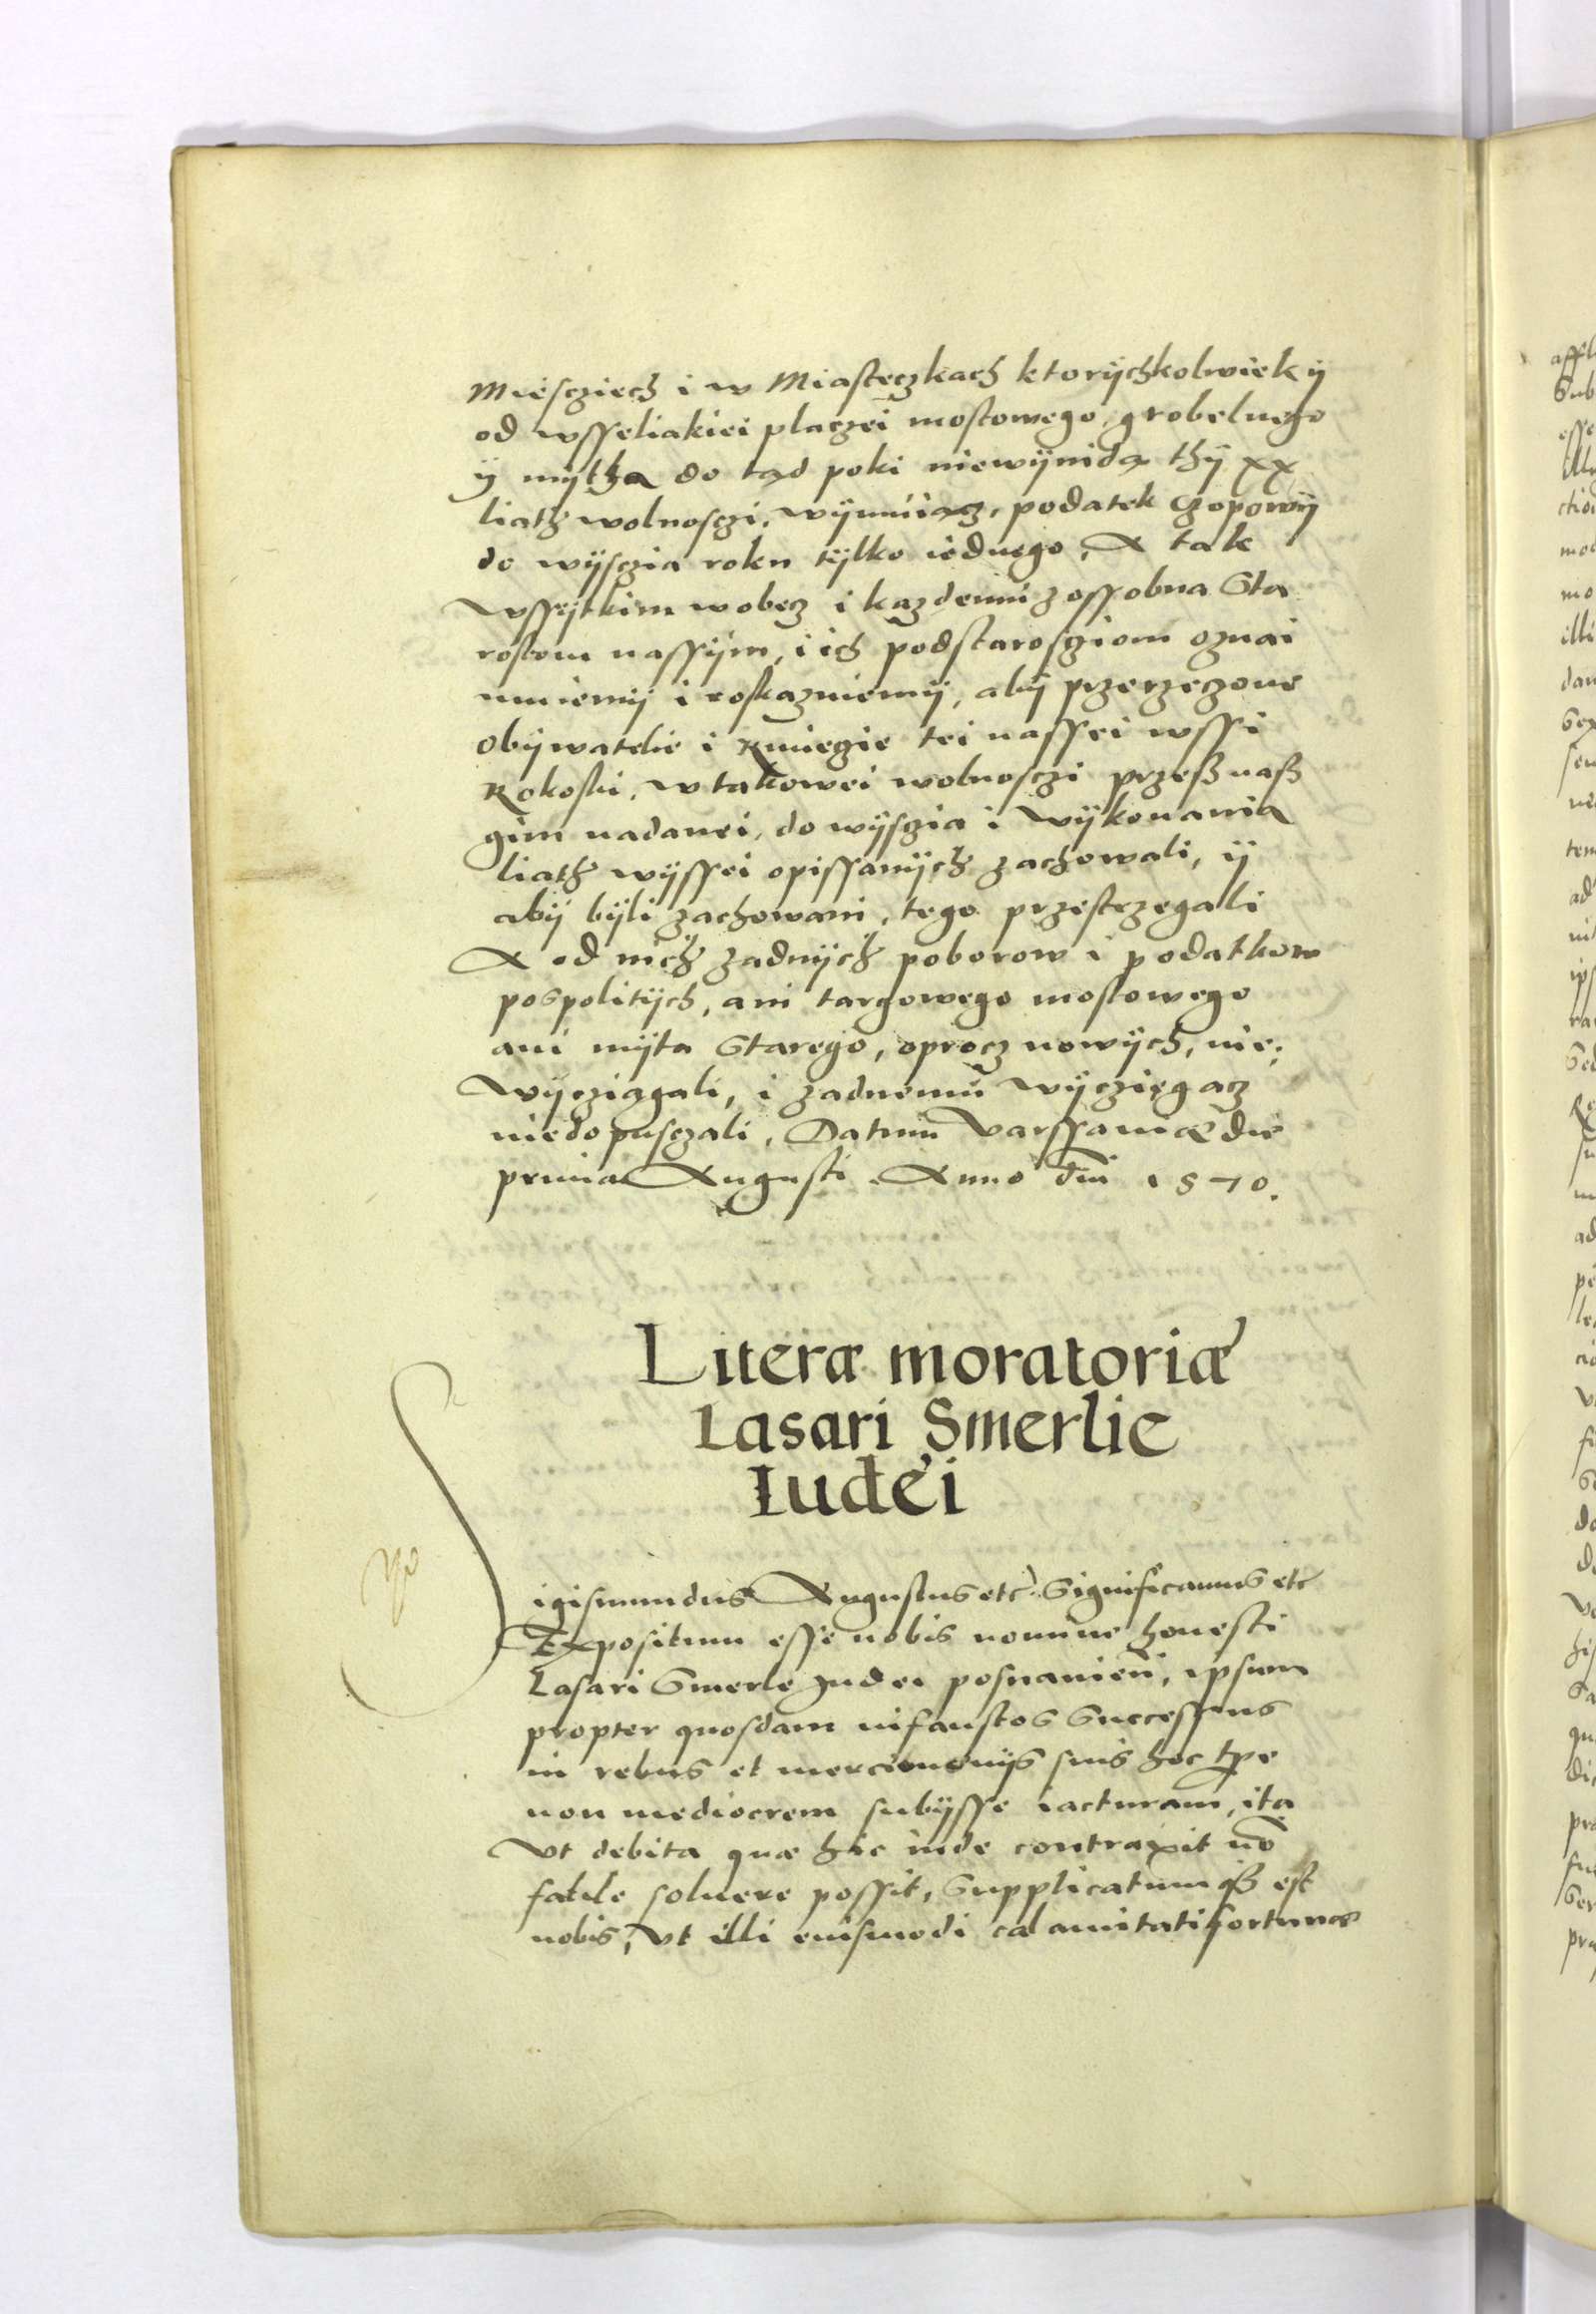 Miescziech i w Miasteczkach ktorÿchkolwiek ÿ
od wsseliakiei placzei mostowego, grobelnego
ÿ mÿtha do tąd poki niewÿnidą thÿ xx
liath wolnosczi, wÿmuiącz, podatek czopowÿ
do wÿsczia roku tÿlko iednego, A tak
wssÿtkim wobecz i kazdemu z ossobna Sta
rostom nassÿm, i ich podstarosczіom oznai
muiemÿ i roskazuiemÿ, abÿ przerzeczone
obÿwatelie i kmiecie tei nassei wssi
Rokoski, w takowei wolnosczi przeß naß
gim nadanei, do wÿsczia i wÿkonania
liath wÿssei opissanÿch zachowali, ÿ
abÿ bÿli zachowani, tego przestrzegali
A od nich zadnÿch poborow i podatkow
pospolitÿch, ani targowego mostowego
ani mÿta starego, oprocz nowÿch, nie,
wÿcziągali, i zadnemu wÿcziegacz
niedopusczali, Datum Varssaviæ die
prima Augusti. Anno dni 1570.
Literæ moratoriæ
Lasari Smerlie
Iudei
Sigismundus Augustus etc Significamus etc
Expositum esse nobis nomine honesti
Lasari Smerle Judei posnanien, ipsum
propter quosdam infaustos successus
in rebus et mercimonijs suis hoc tpe
non mediocrem subijsse iacturam, ita
vt debita quæ hic inde contraxit no
facile soluere possit, Supplicatumqз est
nobis, vt illi eiusmodi calamitati fortunæ